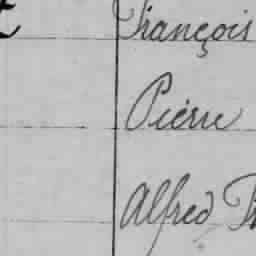 François
Pierre
Alfred